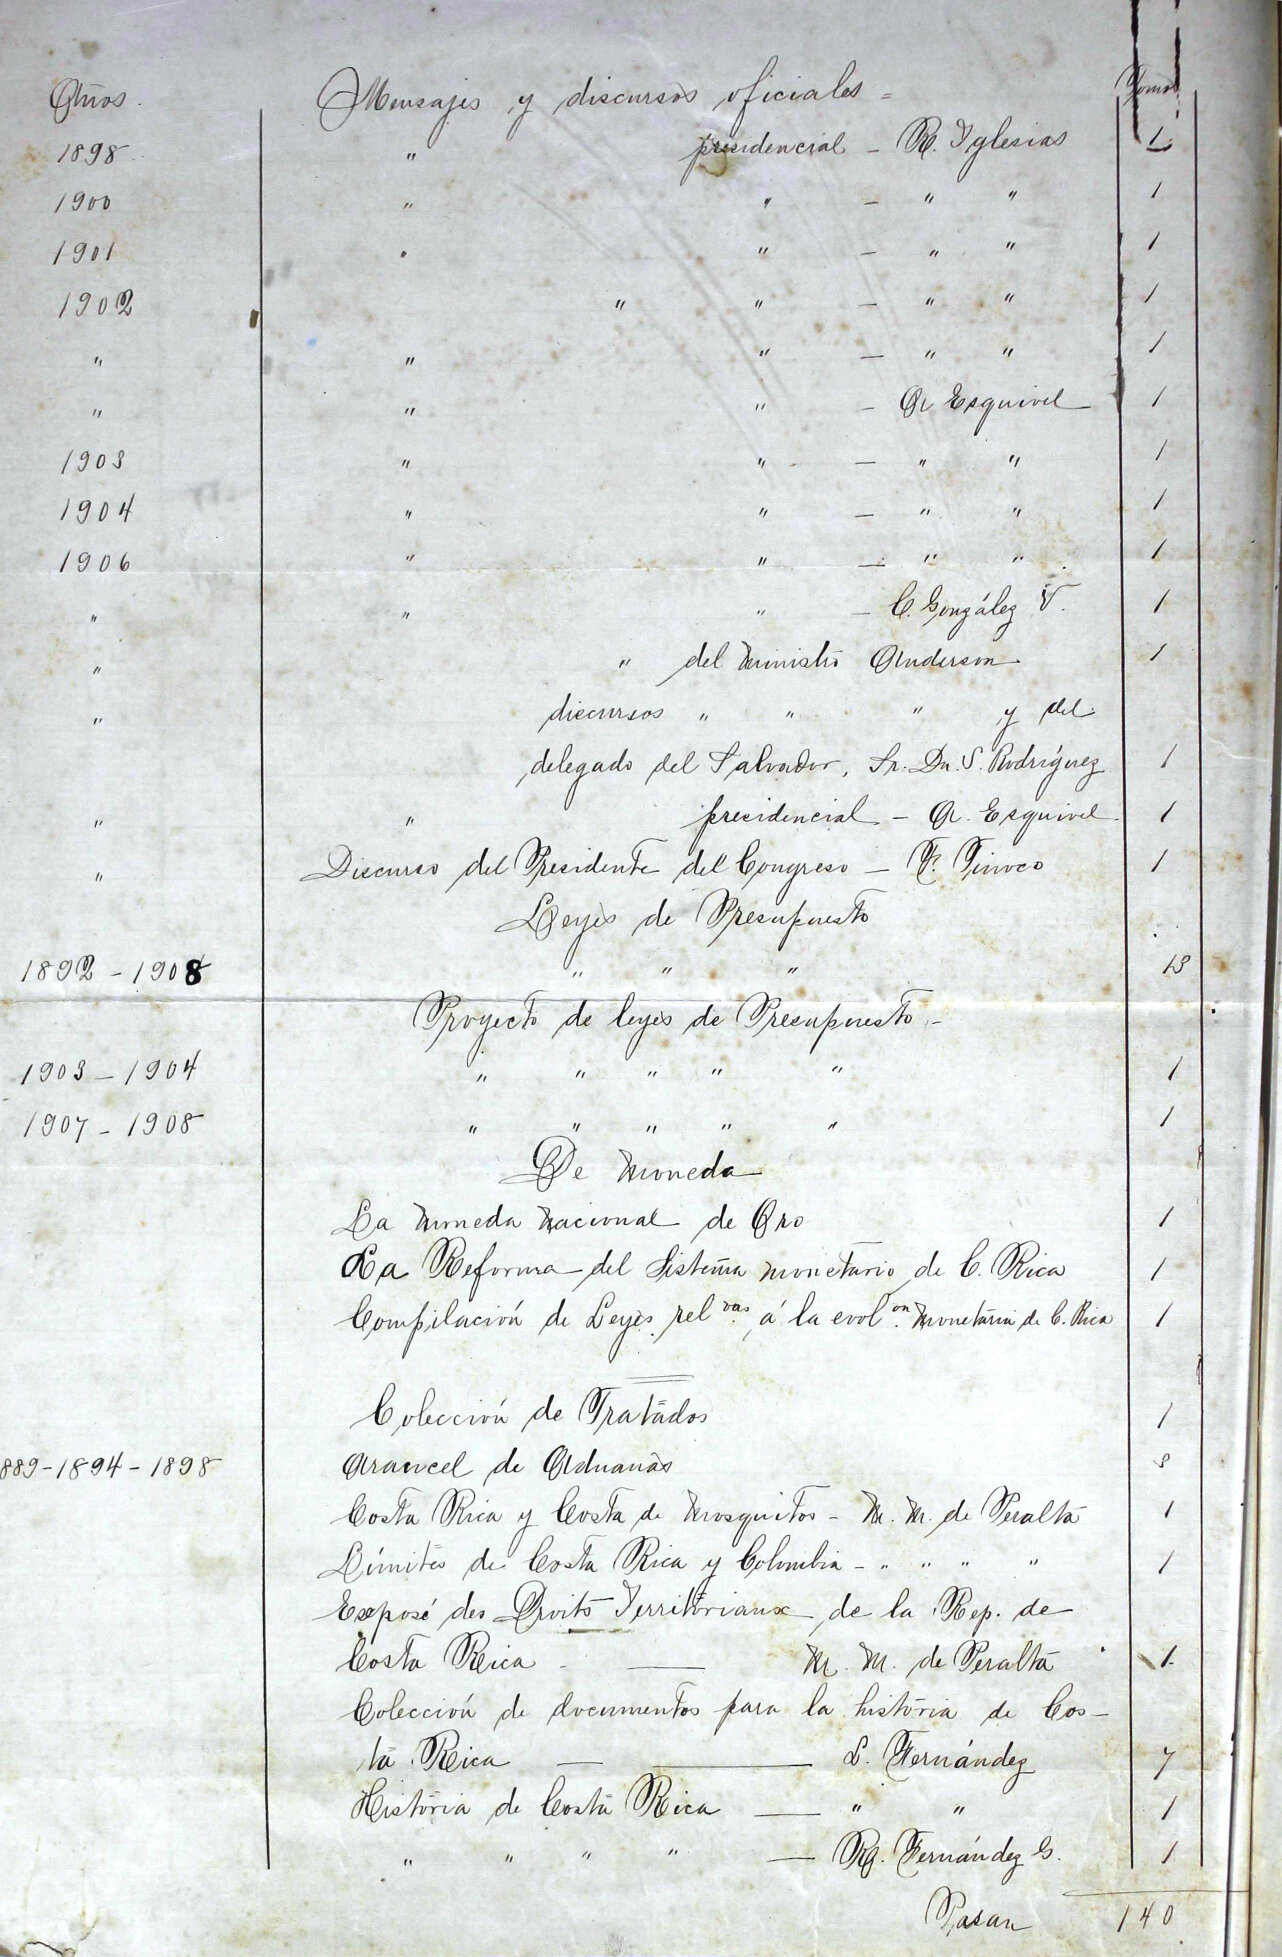 Años. Mensajes y discursos oficiales = Tomos
1898 " presidencial - R. Iglesias 1
1900 " " - " " 1
1901 " " - " " 1
1902 " " - " " 1
" " " - " " 1
" " " - A Esquivel 1
1903 " " - " " 1
1904 " " - " " 1
1906 " " - " " 1
" " " - C. González V. 1
" " del Ministro Anderson 1
" discursos " " " y del
delegado del Salvador, Sr. Dn. S. Rodríguez 1
" " presidencial - A. Esquivel 1
" Discurso del Presidente del Congreso - F. Tinoco 1
Leyes de Presupuesto
1892 - 1908 " " " 13
Proyecto de leyes de Presupuesto -
1903 - 1904 " " " " " 1
1907 - 1908 " " " " " 1
De Moneda
La Moneda Nacional de Oro 1
La Reforma del Sistema Monetario de C. Rica 1
Compilación de Leyes rel.vas á la evol.on Monetaria de C. Rica 1
Colección de Tratados 1
889 - 1894 - 1898 Arancel de Aduanas 3
Costa Rica y Costa de Mosquitos - M. M. de Peralta 1
Límites de Costa Rica y Colombia - " " " " 1
Exposé des Droits Territoriaux de la Rep. de
Costa Rica - — M. M. de Peralta 1
Colección de documentos para la historia de Cos-
ta Rica — — L. Fernández 7
Historia de Costa Rica — " " 1
" " " " — Rg. Fernández G. 1
Pasan 140